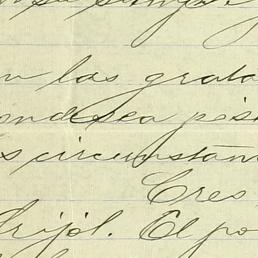 las grata
ondesea pos
s circunstan
Creo
Frijol. El po